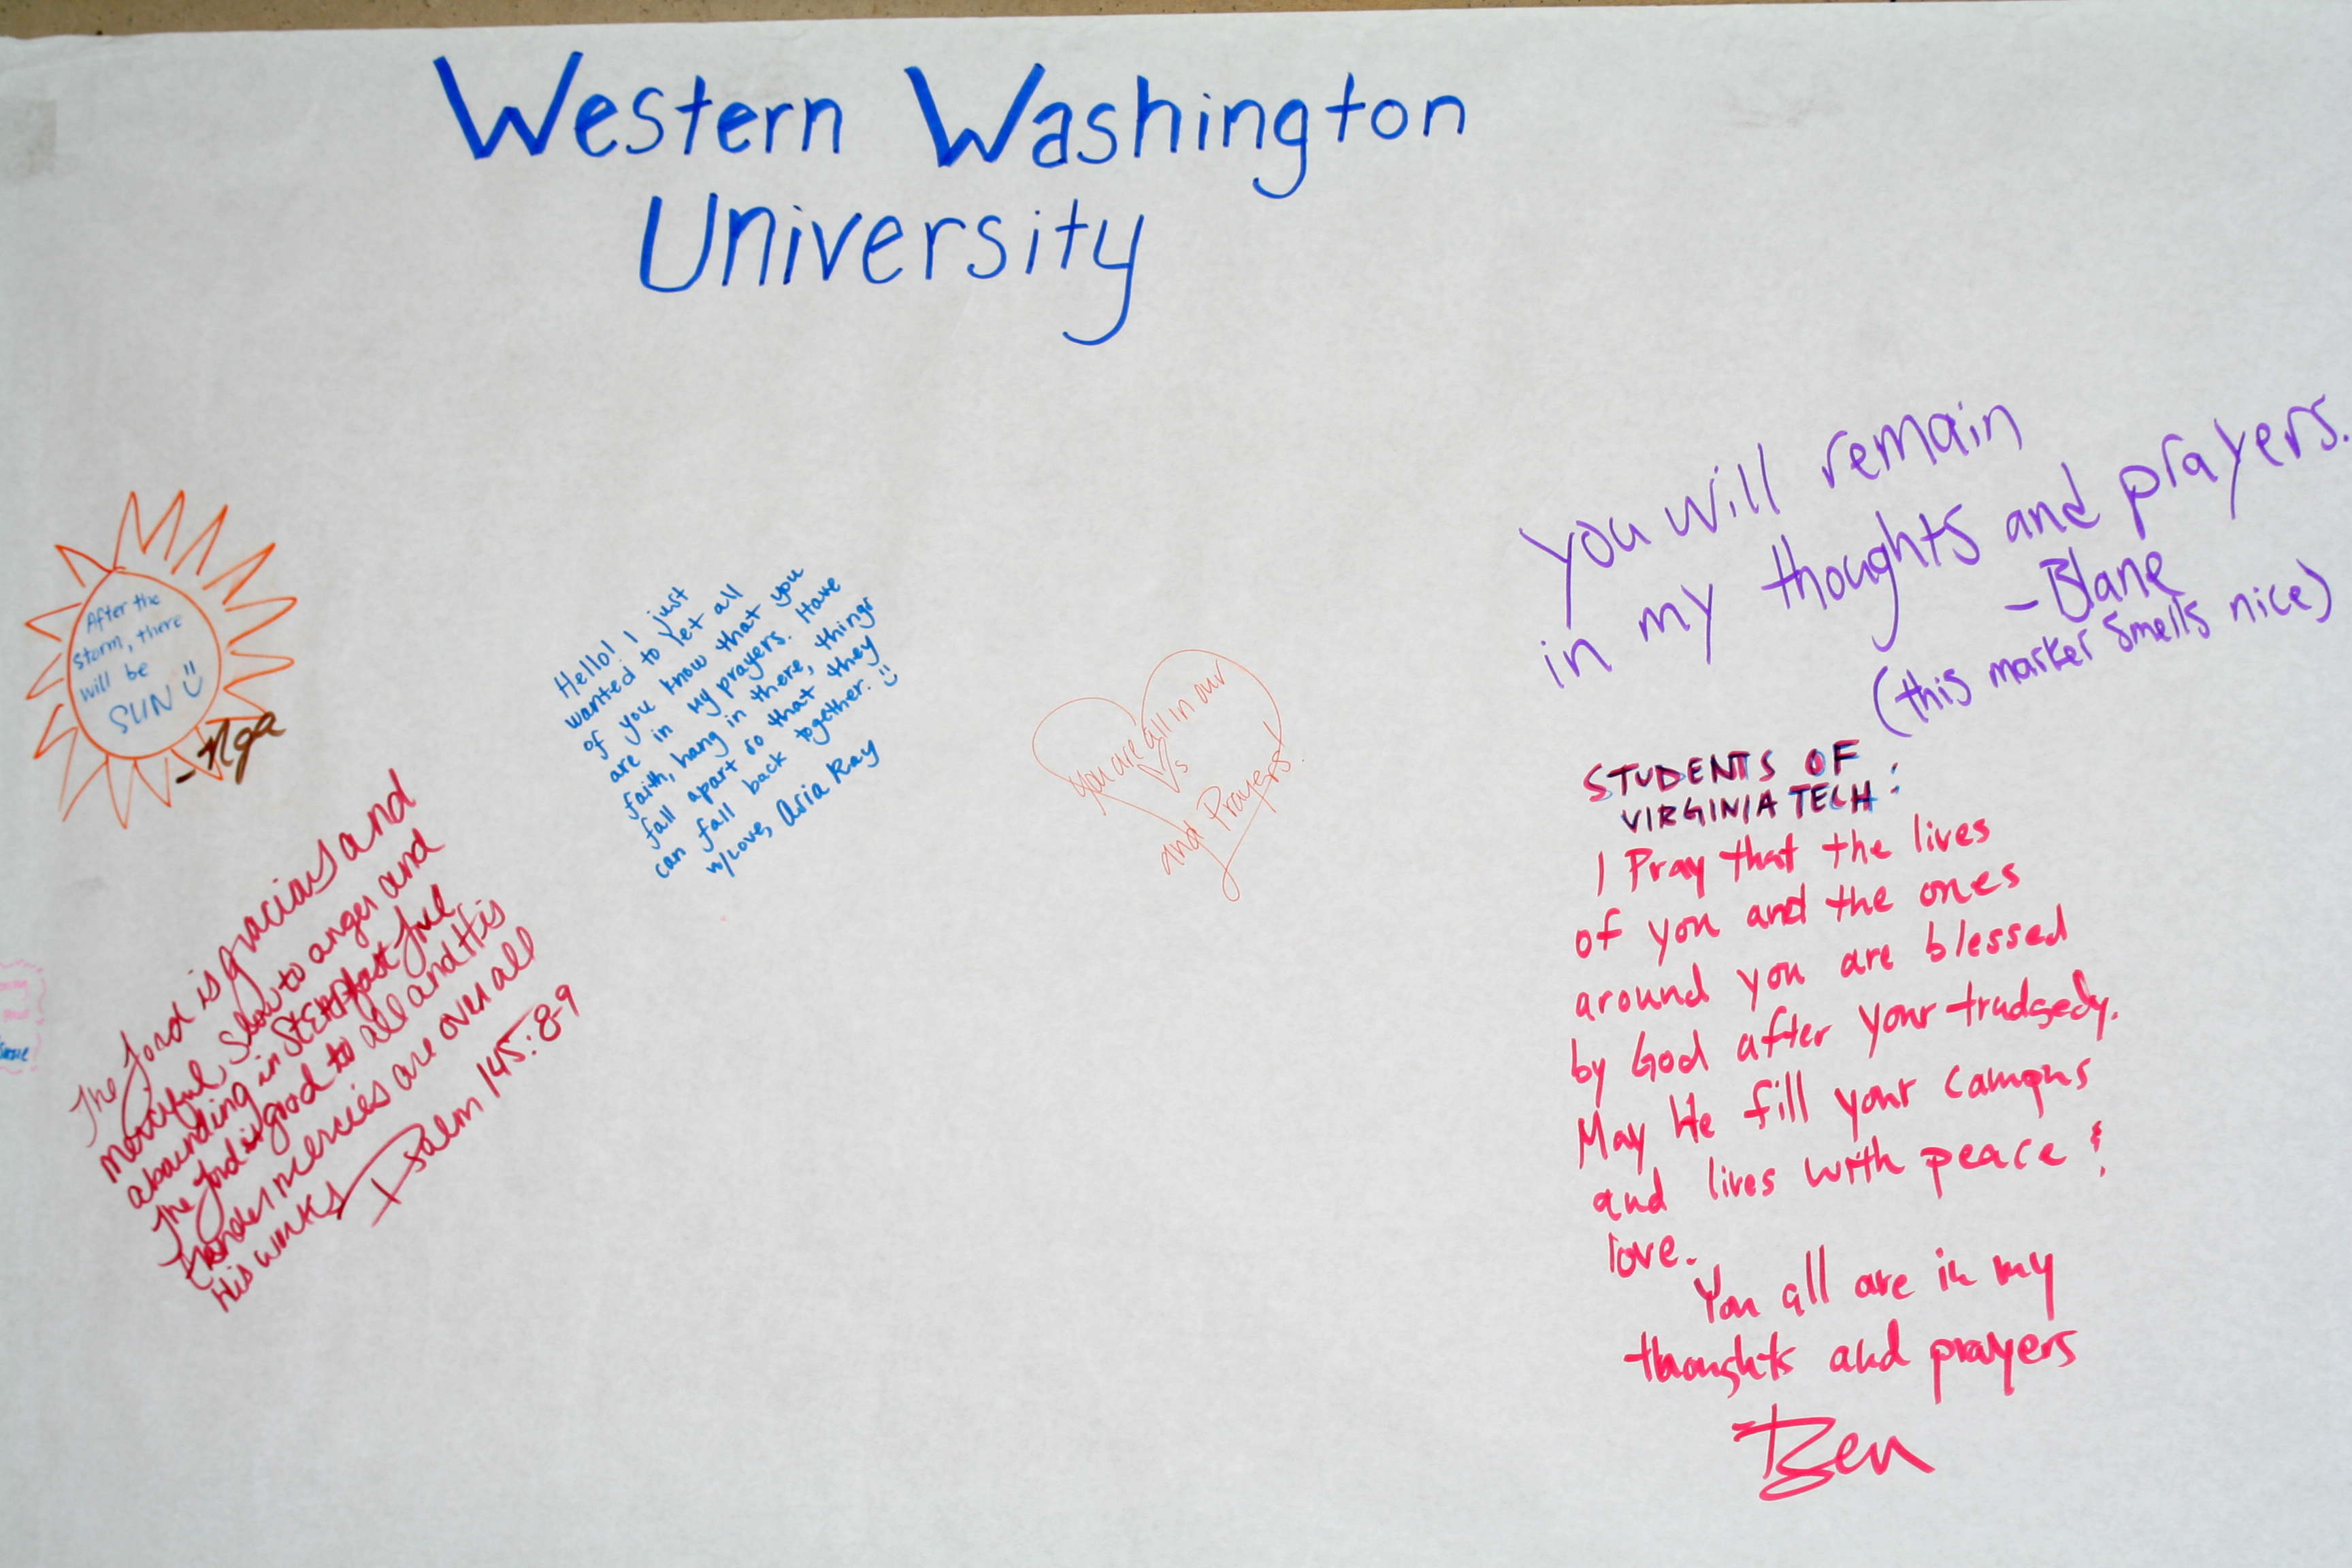 Western Washington
University
After the
storm, there
will be
SUN
-Nga
The Lord is gracious and
merciful, slow to anger and
abounding in steadfast love.
The Lord is good to all and His
tender mercies are over all
His works Psalm 145:8-9
Hello! I just
wanted to let all
of you know that you
are in my prayers. Have
faith, hang in there, things
fall apart so that they
can fall back together. :)
w/Love, Asia Ray
You are all in our
♡s
and Prayers!
You will remain
in my thoughts and prayers.
-Blane
(this marker smells nice)
STUDENTS OF
VIRGINIA TECH:
I Pray that the lives
of you and the ones
around you are blessed
by God after your trudgedy.
May He fill your campus
and lives with peace &
love.
You all are in my
thoughts and prayers
Ben